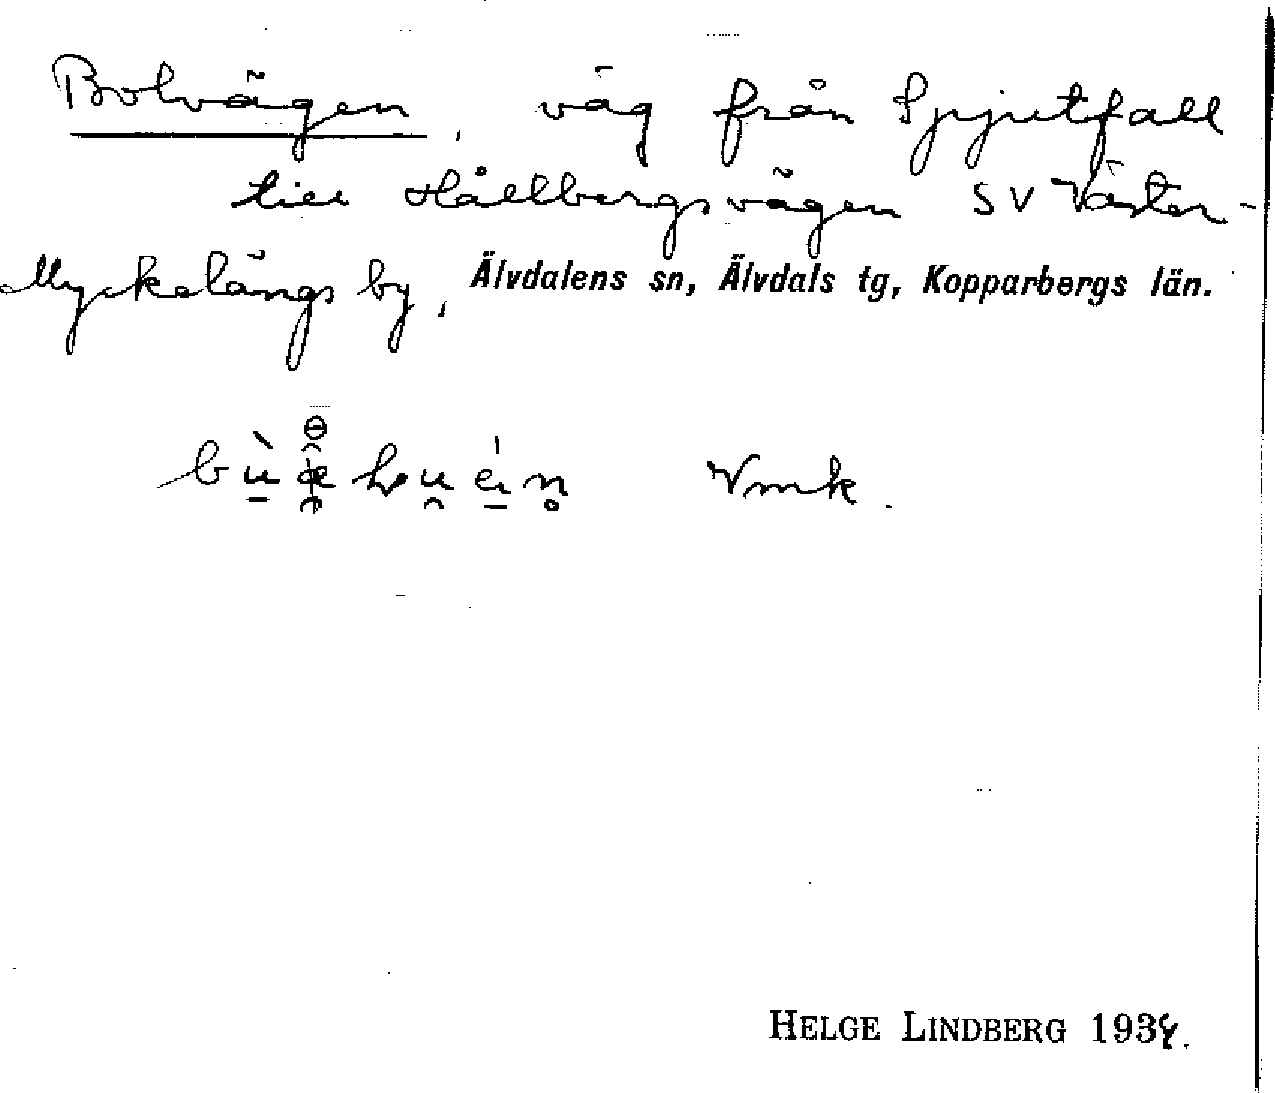 Bolvägen, väg från Spjutfall
till Hållbergsvägen SV Väster-
Myckelängs by, Älvdalens sn, Älvdals tg, Kopparbergs län.
Vmk.
HELGE LINDBERG 1934.